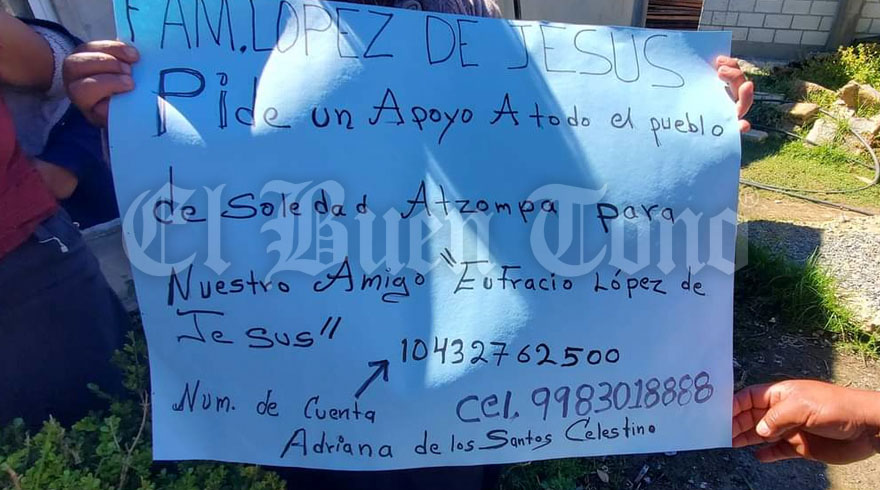 FAM. LOPEZ DE JESUS
Pide un Apoyo A todo el pueblo
de Soledad Atzompa para
El Buen Tono
Nuestro Amigo "Eufracio López de
Jesus"
10432762500
Num. de Cuenta
cel. 9983018888
Adriana de los Santos Celestino